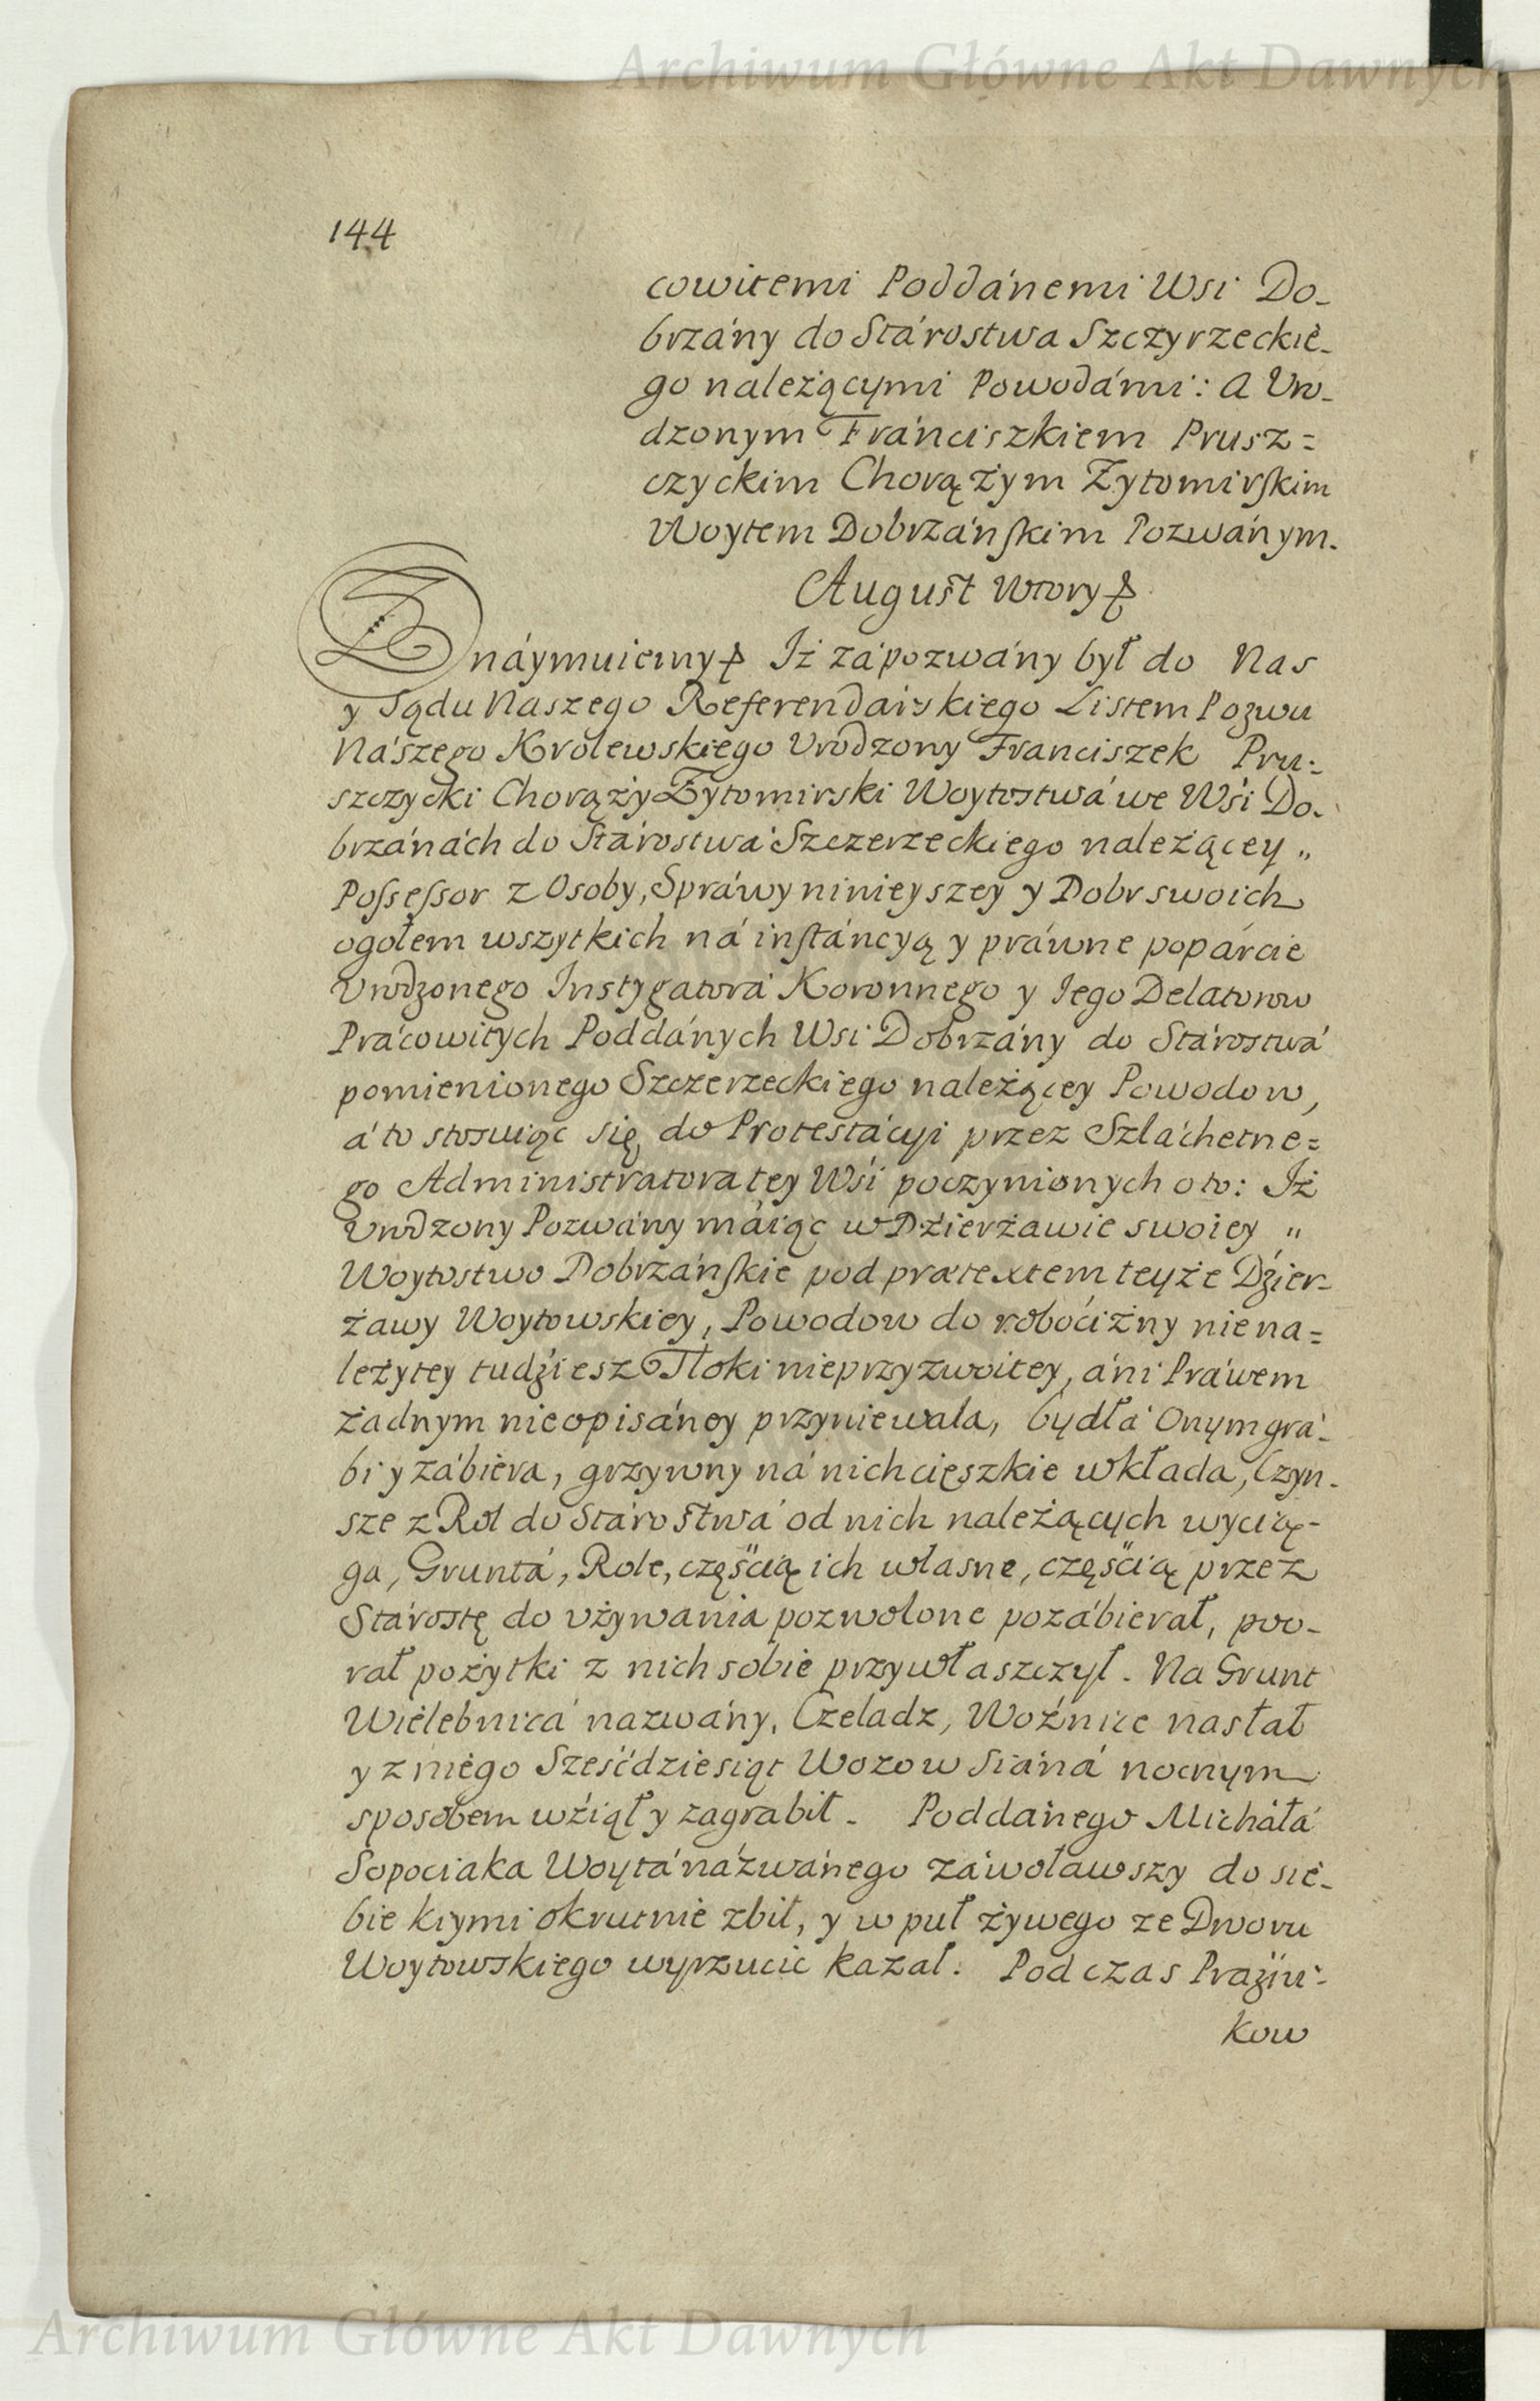 Archiwum Główne Akt Dawnych
144
cowitemi Poddánemi Wsi Do-
brzány do Stárostwa Szczyrzeckie-
go należącymi Powodámi: a Uro-
dzonym Fránciszkiem Prusz=
czyckim Chorążym Zytomirskim
Woytem Dobrzánskim Pozwánym.
August Wtory
Znáymuiemy Iż zápozwány był do Nas
y Sądu Naszego Referendarskiego Listem Pozwu
Nászego Krolewskiego Urodzony Franciszek Pru-
szczycki Chorąży Zytomirski Woytostwá we Wśi Do-
brzánách do Stárostwá Szczerzeckiego należącey „
Possessor z Osoby, Spráwy ninieyszey y Dobr swoich
ogołem wszytkich ná instáncyą y práwne popárcie
Urodzonego Instygatorá Koronnego y Iego Delatorow
Prácowitych Poddánych Wsi Dobrzány do Stárostwá
pomienionego Szczerzeckiego należącey Powodow,
á to stosuiąc się do Protestácyi przez Szláchetne=
go Administratora tey Wśi poczynionych o to: Iż
Urodzony Pozwány máiąc w Dźierżawie swoiey „
Woytostwo Dobrzánskie pod prætextem teyże Dźier-
żawy Woytowskiey, Powodow do roboćizny niena=
leżytey tudźiesz Tłoki nieprzyzwoitey, áni Práwem
żadnym nieopisáney przyniewala, bydłá Onym grá-
bi y zábiera, grzywny ná nich cięszkie wkłada, Czyn-
sze z Rol do Stárostwá od nich należących wycią-
ga, Gruntá, Role, częścią ich własne, częścią przez
Stárostę do używania pozwolone pozábierał, poo-
rał pożytki z nich sobie przywłaszczył. Na Grunt
Wielebnicá nazwány, Czeladz, Woźnice nasłał
y z niego Sześćdziesiąt Wozow Siáná nocnym
sposobem wźiął y zagrabił. Poddánego Micháłá
Sopociaka Woytá názwánego záwoławszy do sie-
bie kiymi okrutnie zbił, y w puł żywego ze Dworu
Woytowskiego wyrzucic kazał. Podczas Praźni-
kow
Archiwum Główne Akt Dawnych